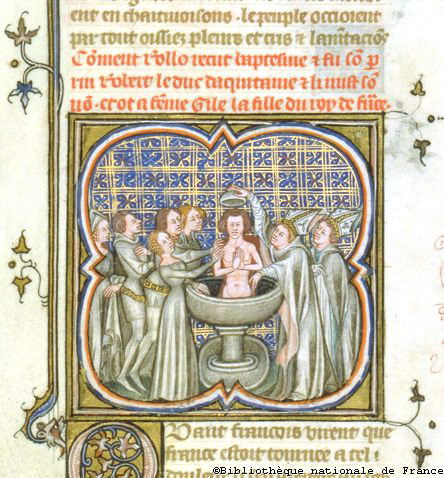 ent en le peuple occioient
par tout oussiez pleurs et cris & lamtacios
Coment rollo recut baptesme & fu so p
rin robert le duc daquitaine & li mist so
no . et ot a feme gile la fille du roy de
Quant francois virent que
france estoit tournee a tel
©Bibliothèque nationale de France